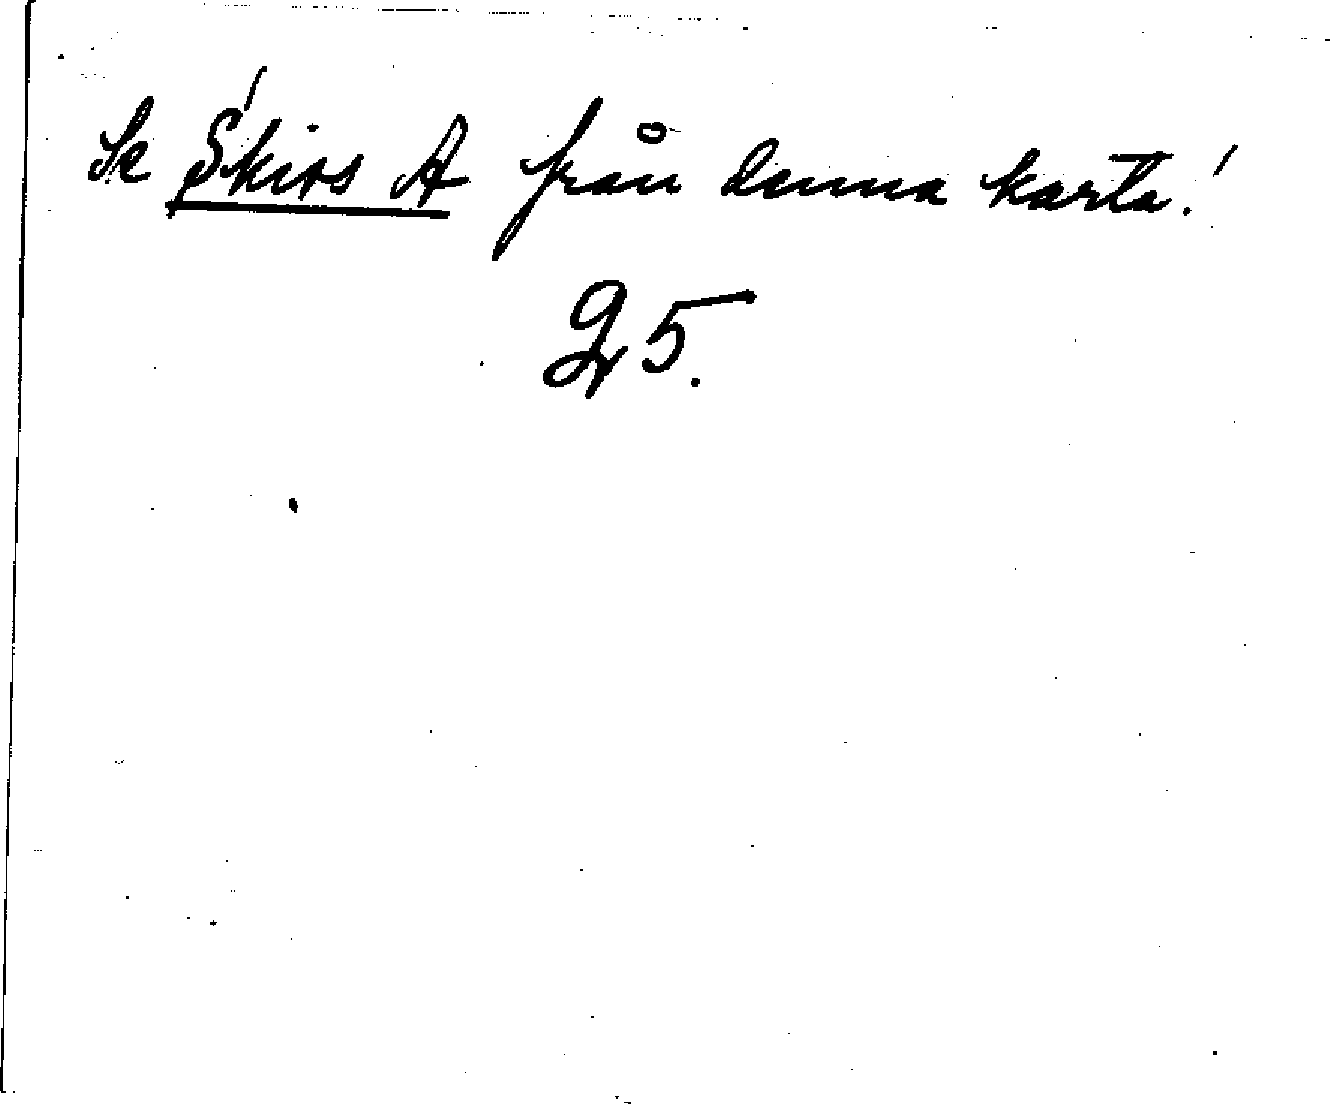 Se Skirs A från denna karta!
25.